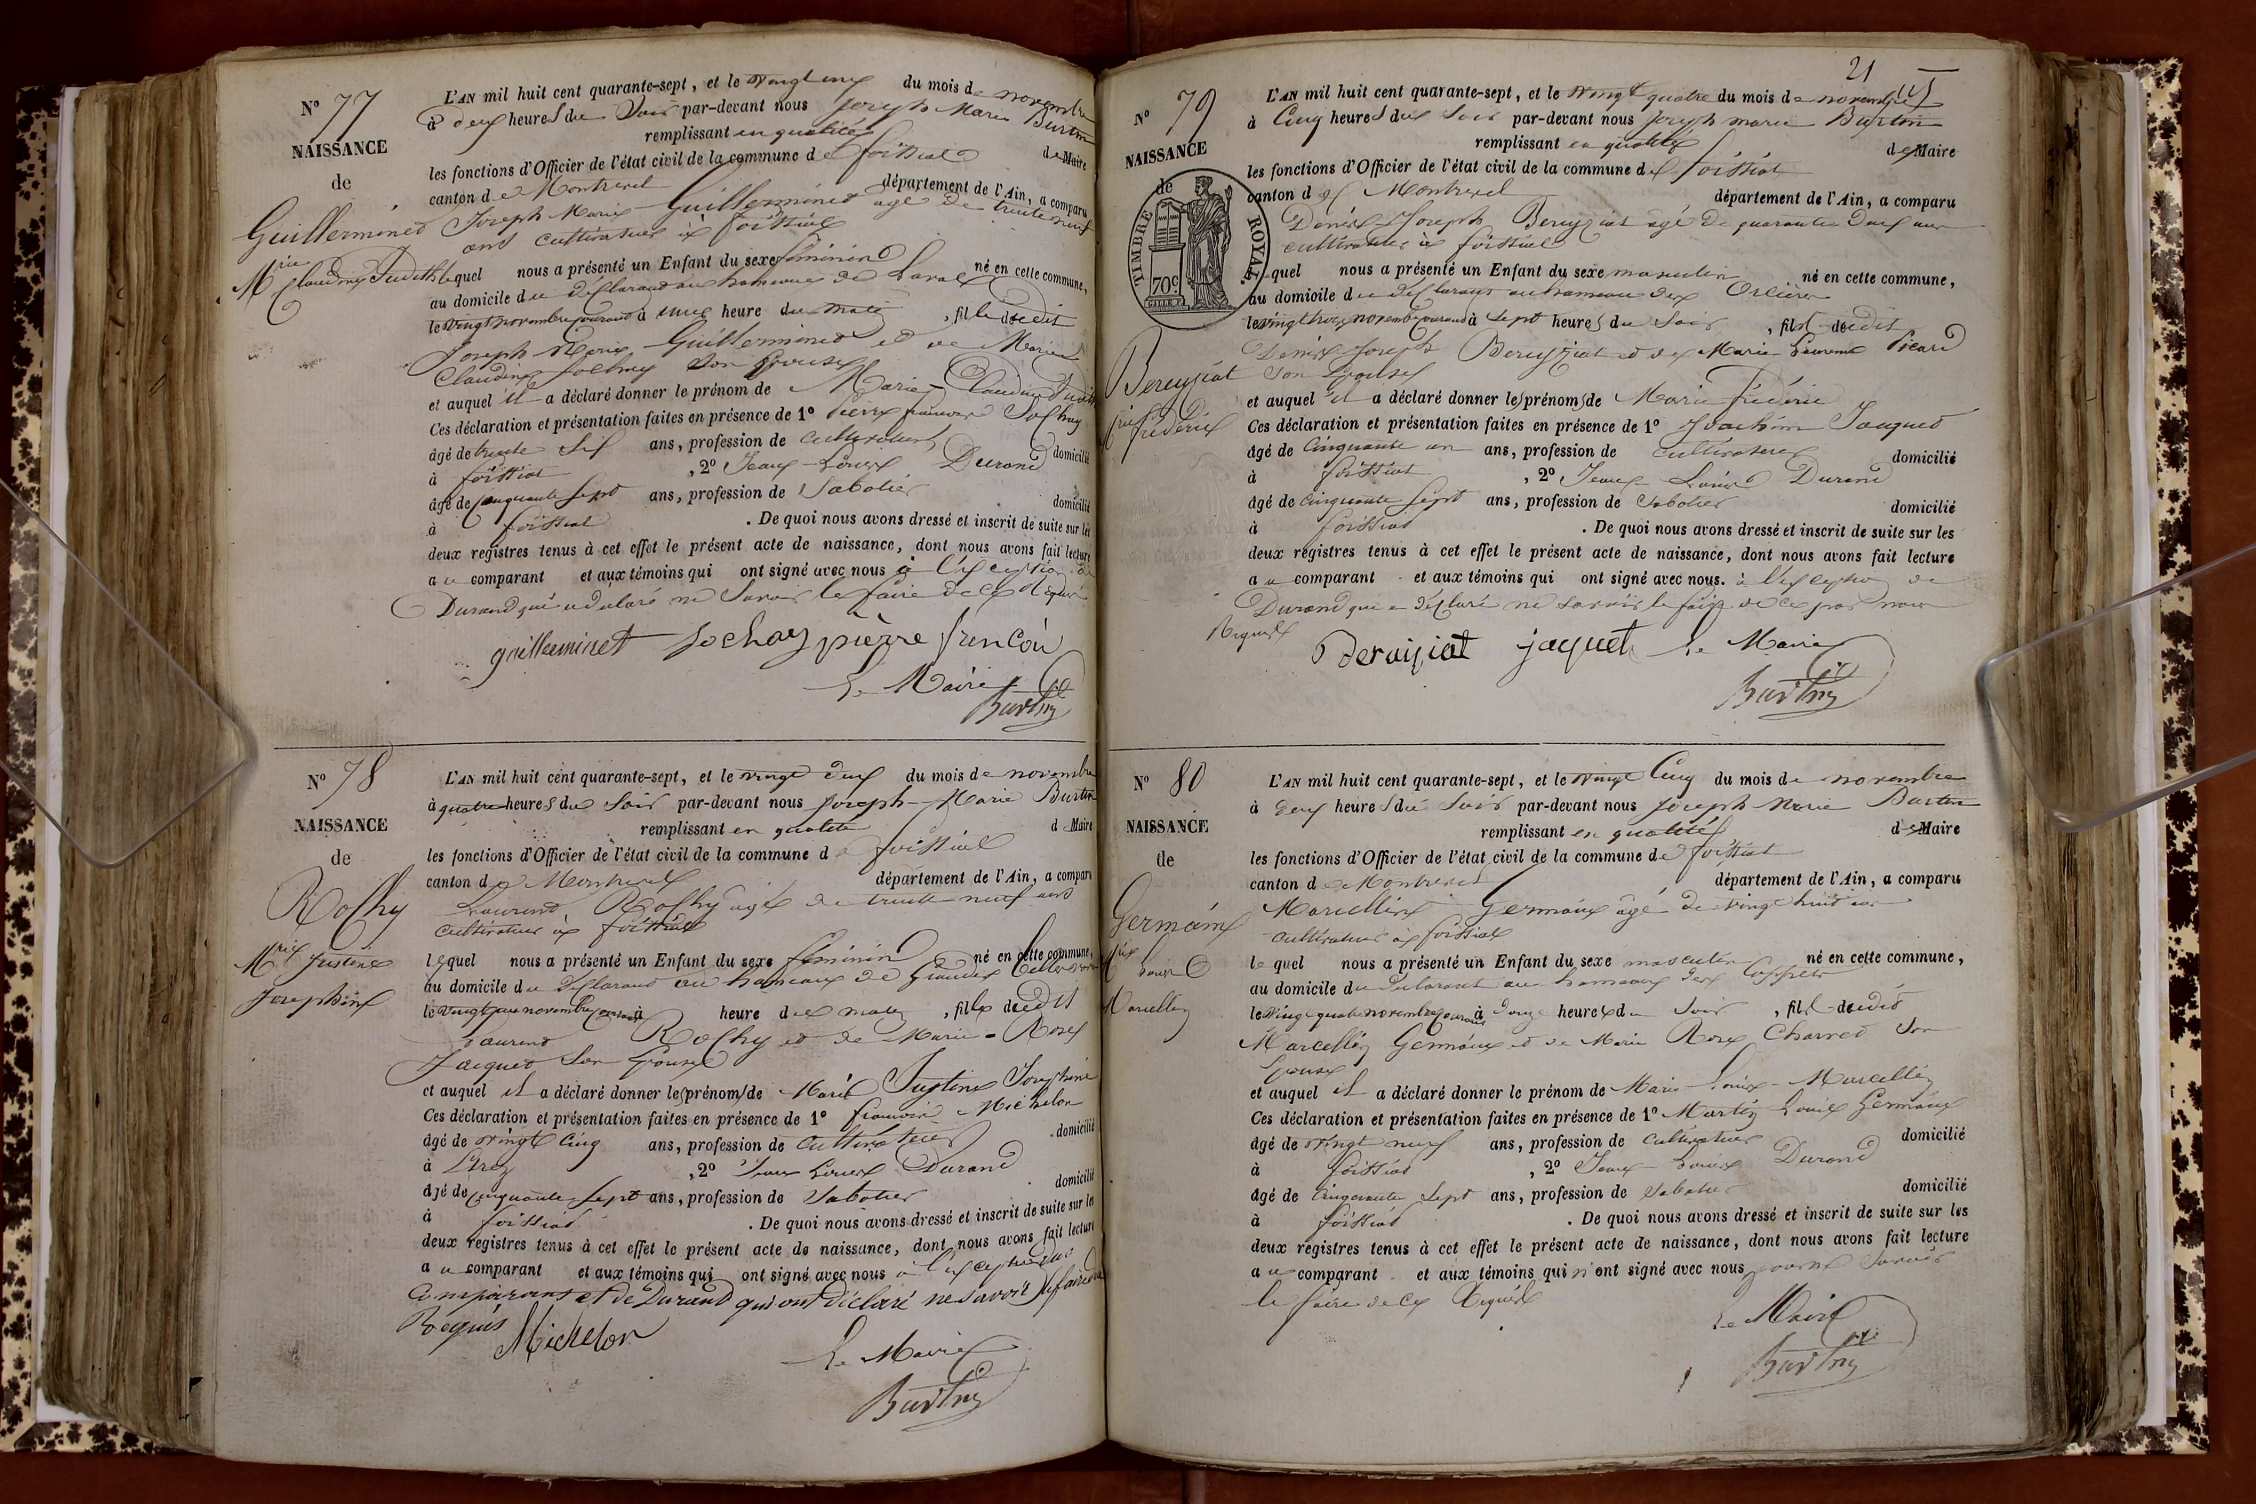 N° 77
NAISSANCE
de
Guilleminet
Mrie Claudine Judith
L'AN mil huit cent quarante-sept, et le vingt un du mois de novembre
à deux heures du soir par-devant nous Joseph Marie Burtin
remplissant en qualité de Maire
les fonctions d'Officier de l'état civil de la commune de foissiat
canton de Montrevel département de l'Ain, a comparu
Joseph Marie Guilleminet âgé de trente neuf
ans cultivateur à foissiat
lequel nous a présenté un Enfant du sexe féminin né en cette commune,
au domicile du déclarant au hameau de Laval
le vingt novembre courant à une heure du matin, fille dudit
Joseph Marie Guilleminet et de Marie
Claudine Sochay son épouse
et auquel il a déclaré donner le prénom de Marie Claudine Judith
Ces déclaration et présentation faites en présence de 1° Pierre françois Sochay
âgé de trente six ans, profession de cultivateur domicilié
à foissiat, 2° Jean Louis Durand
âgé de cinquante sept ans, profession de Sabotier domicilié
à foissiat. De quoi nous avons dressé et inscrit de suite sur les
deux registres tenus à cet effet le présent acte de naissance, dont nous avons fait lecture
au comparant et aux témoins qui ont signé avec nous à l'exception de
Durand qui a déclaré ne savoir le faire de ce requis
guilleminet sochay pierre francoi
Le Maire
Burtin
N° 78
NAISSANCE
de
Rochy
Mrie Justine
Josephine
L'AN mil huit cent quarante-sept, et le vingt deux du mois de novembre
à quatre heures du soir par-devant nous Joseph-Marie Burtin
remplissant en qualité de Maire
les fonctions d'Officier de l'état civil de la commune de foissiat
canton de Montrevel département de l'Ain, a comparu
Laurent Rochy âgé de trente neuf ans
cultivateur à foissiat
lequel nous a présenté un Enfant du sexe féminin né en cette commune,
au domicile du déclarant au hameau de
le vingt un novembre courant à heure du matin, fille dudit
Laurent Rochy et de Marie-Rose
Jacquet son épouse
et auquel il a déclaré donner les prénoms de Marie Justine Josephine
Ces déclaration et présentation faites en présence de 1° françois Michelon
âgé de vingt cinq ans, profession de cultivateur domicilié
à, 2° Jean Louis Durand
âgé de cinquante-sept ans, profession de Sabotier domicilié
à foissiat. De quoi nous avons dressé et inscrit de suite sur les
deux registres tenus à cet effet le présent acte de naissance, dont nous avons fait lecture
au comparant et aux témoins qui ont signé avec nous à l'exception du
comparant et de Durand qui ont déclaré ne savoir le faire de ce
Requis
Michelon
Le Maire
Burtin
21
N° 79
NAISSANCE
de
TIMBRE ROYAL.
70c
Bereyziat
Mrie frédéric
L'AN mil huit cent quarante-sept, et le vingt quatre du mois de novembre
à Cinq heures du soir par-devant nous Joseph marie Burtin
remplissant en qualité de Maire
les fonctions d'Officier de l'état civil de la commune de foissiat
canton de Montrevel département de l'Ain, a comparu
Denis Joseph Bereyziat âgé de quarante deux ans
cultivateur à foissiat
lequel nous a présenté un Enfant du sexe masculin né en cette commune,
au domicile du déclarant au hameau des Orcières
le vingt trois novembre courant à sept heures du soir, fils dudit
Denis Joseph Bereyziat et de Marie Laurence Picard
son épouse
et auquel il a déclaré donner les prénoms de Marie frédéric
Ces déclaration et présentation faites en présence de 1° Joachim Jaquet
âgé de Cinquante un ans, profession de cultivateur domicilié
à foissiat, 2° Jean Louis Durand
âgé de cinquante sept ans, profession de Sabotier domicilié
à foissiat. De quoi nous avons dressé et inscrit de suite sur les
deux registres tenus à cet effet le présent acte de naissance, dont nous avons fait lecture
au comparant et aux témoins qui ont signé avec nous. à l'exception de
Durand qui a déclaré ne savoir le faire de ce par nous
Requis
Beraiziat jaquet Le Maire
Burtin
N° 80
NAISSANCE
de
Germain
Mrie
Louis
Marcellin
L'AN mil huit cent quarante-sept, et le vingt Cinq du mois de novembre
à deux heures du soir par-devant nous Joseph Marie Burtin
remplissant en qualité de Maire
les fonctions d'Officier de l'état civil de la commune de foissiat
canton de Montrevel département de l'Ain, a comparu
Marcellin Germain âgé de vingt huit ans
cultivateur à foissiat
lequel nous a présenté un Enfant du sexe masculin né en cette commune,
au domicile du déclarant au hameau des
le vingt quatre novembre courant à onze heures du soir, fils dudit
Marcellin Germain et de Marie Rose Charvet son
épouse
et auquel il a déclaré donner le prénom de Marie-Louis-Marcellin
Ces déclaration et présentation faites en présence de 1° Martin Louis Germain
âgé de vingt neuf ans, profession de cultivateur domicilié
à foissiat, 2° Jean Louis Durand
âgé de cinquante sept ans, profession de sabotier domicilié
à foissiat. De quoi nous avons dressé et inscrit de suite sur les
deux registres tenus à cet effet le présent acte de naissance, dont nous avons fait lecture
au comparant et aux témoins qui n'ont signé avec nous pour ne savoir
le faire de ce Requis
Le Maire
Burtin